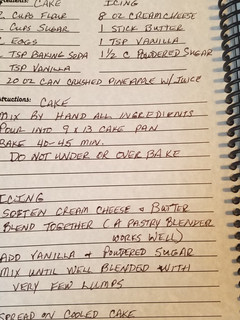 CAKE ICING
CUPS FLOUR 8 OZ CREAM CHEESE
CUPS SUGAR 1 STICK BUTTER
EGGS 1 TSP VANILLA
TSP BAKING SODA 1 1/2 C POWDERED SUGAR
TSP VANILLA
20 OZ CAN CRUSHED PINEAPPLE W/JUICE
CAKE
MIX BY HAND ALL INGREDIENTS
POUR INTO 9 X 13 CAKE PAN
BAKE 40-45 MIN.
DO NOT UNDER OR OVER BAKE
ICING
SOFTEN CREAM CHEESE & BUTTER
BLEND TOGETHER (A PASTRY BLENDER
WORKS WELL)
ADD VANILLA & POWDERED SUGAR
MIX UNTIL WELL BLENDED WITH
VERY FEW LUMPS
SPREAD ON COOLED CAKE